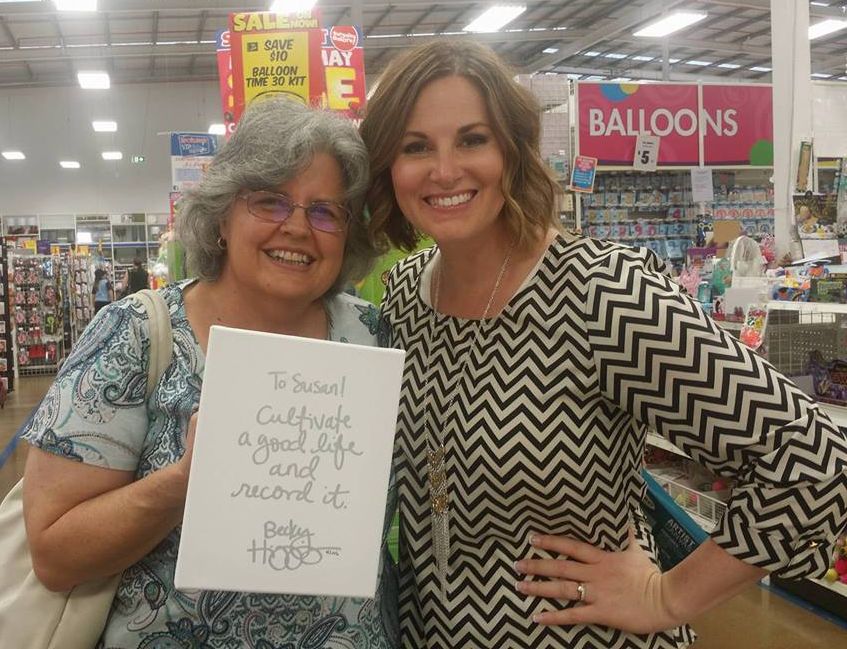 SALE ON NOW!
SAVE
$10
BALLOON
TIME 30 KIT
BALLOONS
$5
To Susan!
Cultivate
a good life
and
record it.
Becky
Higgins
ARTIST